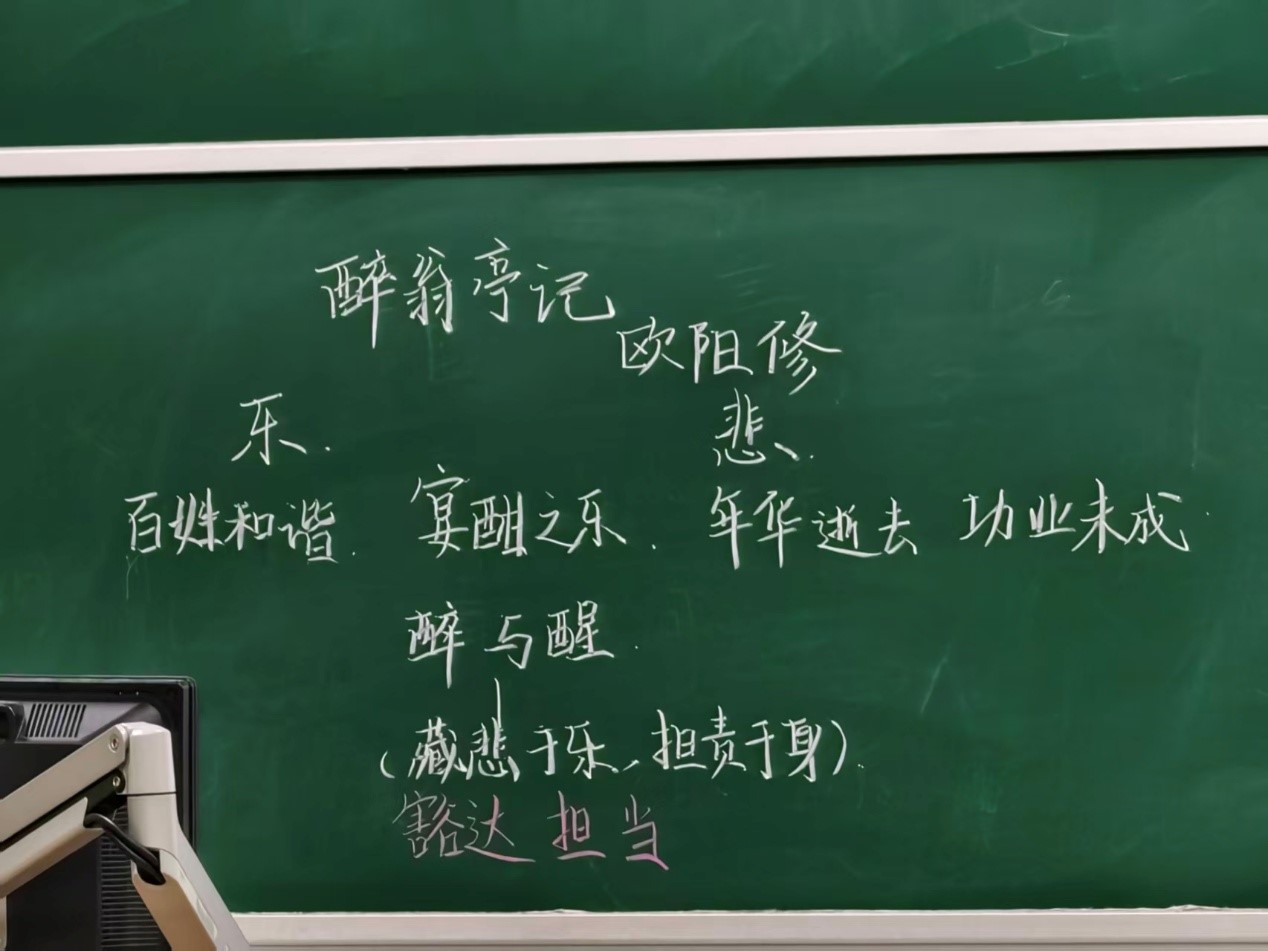 醉翁亭记
欧阳修
乐. 悲.
百姓和谐. 宴酣之乐. 年华逝去 功业未成.
醉与醒.
(藏悲于乐、担责于身).
豁达 担当